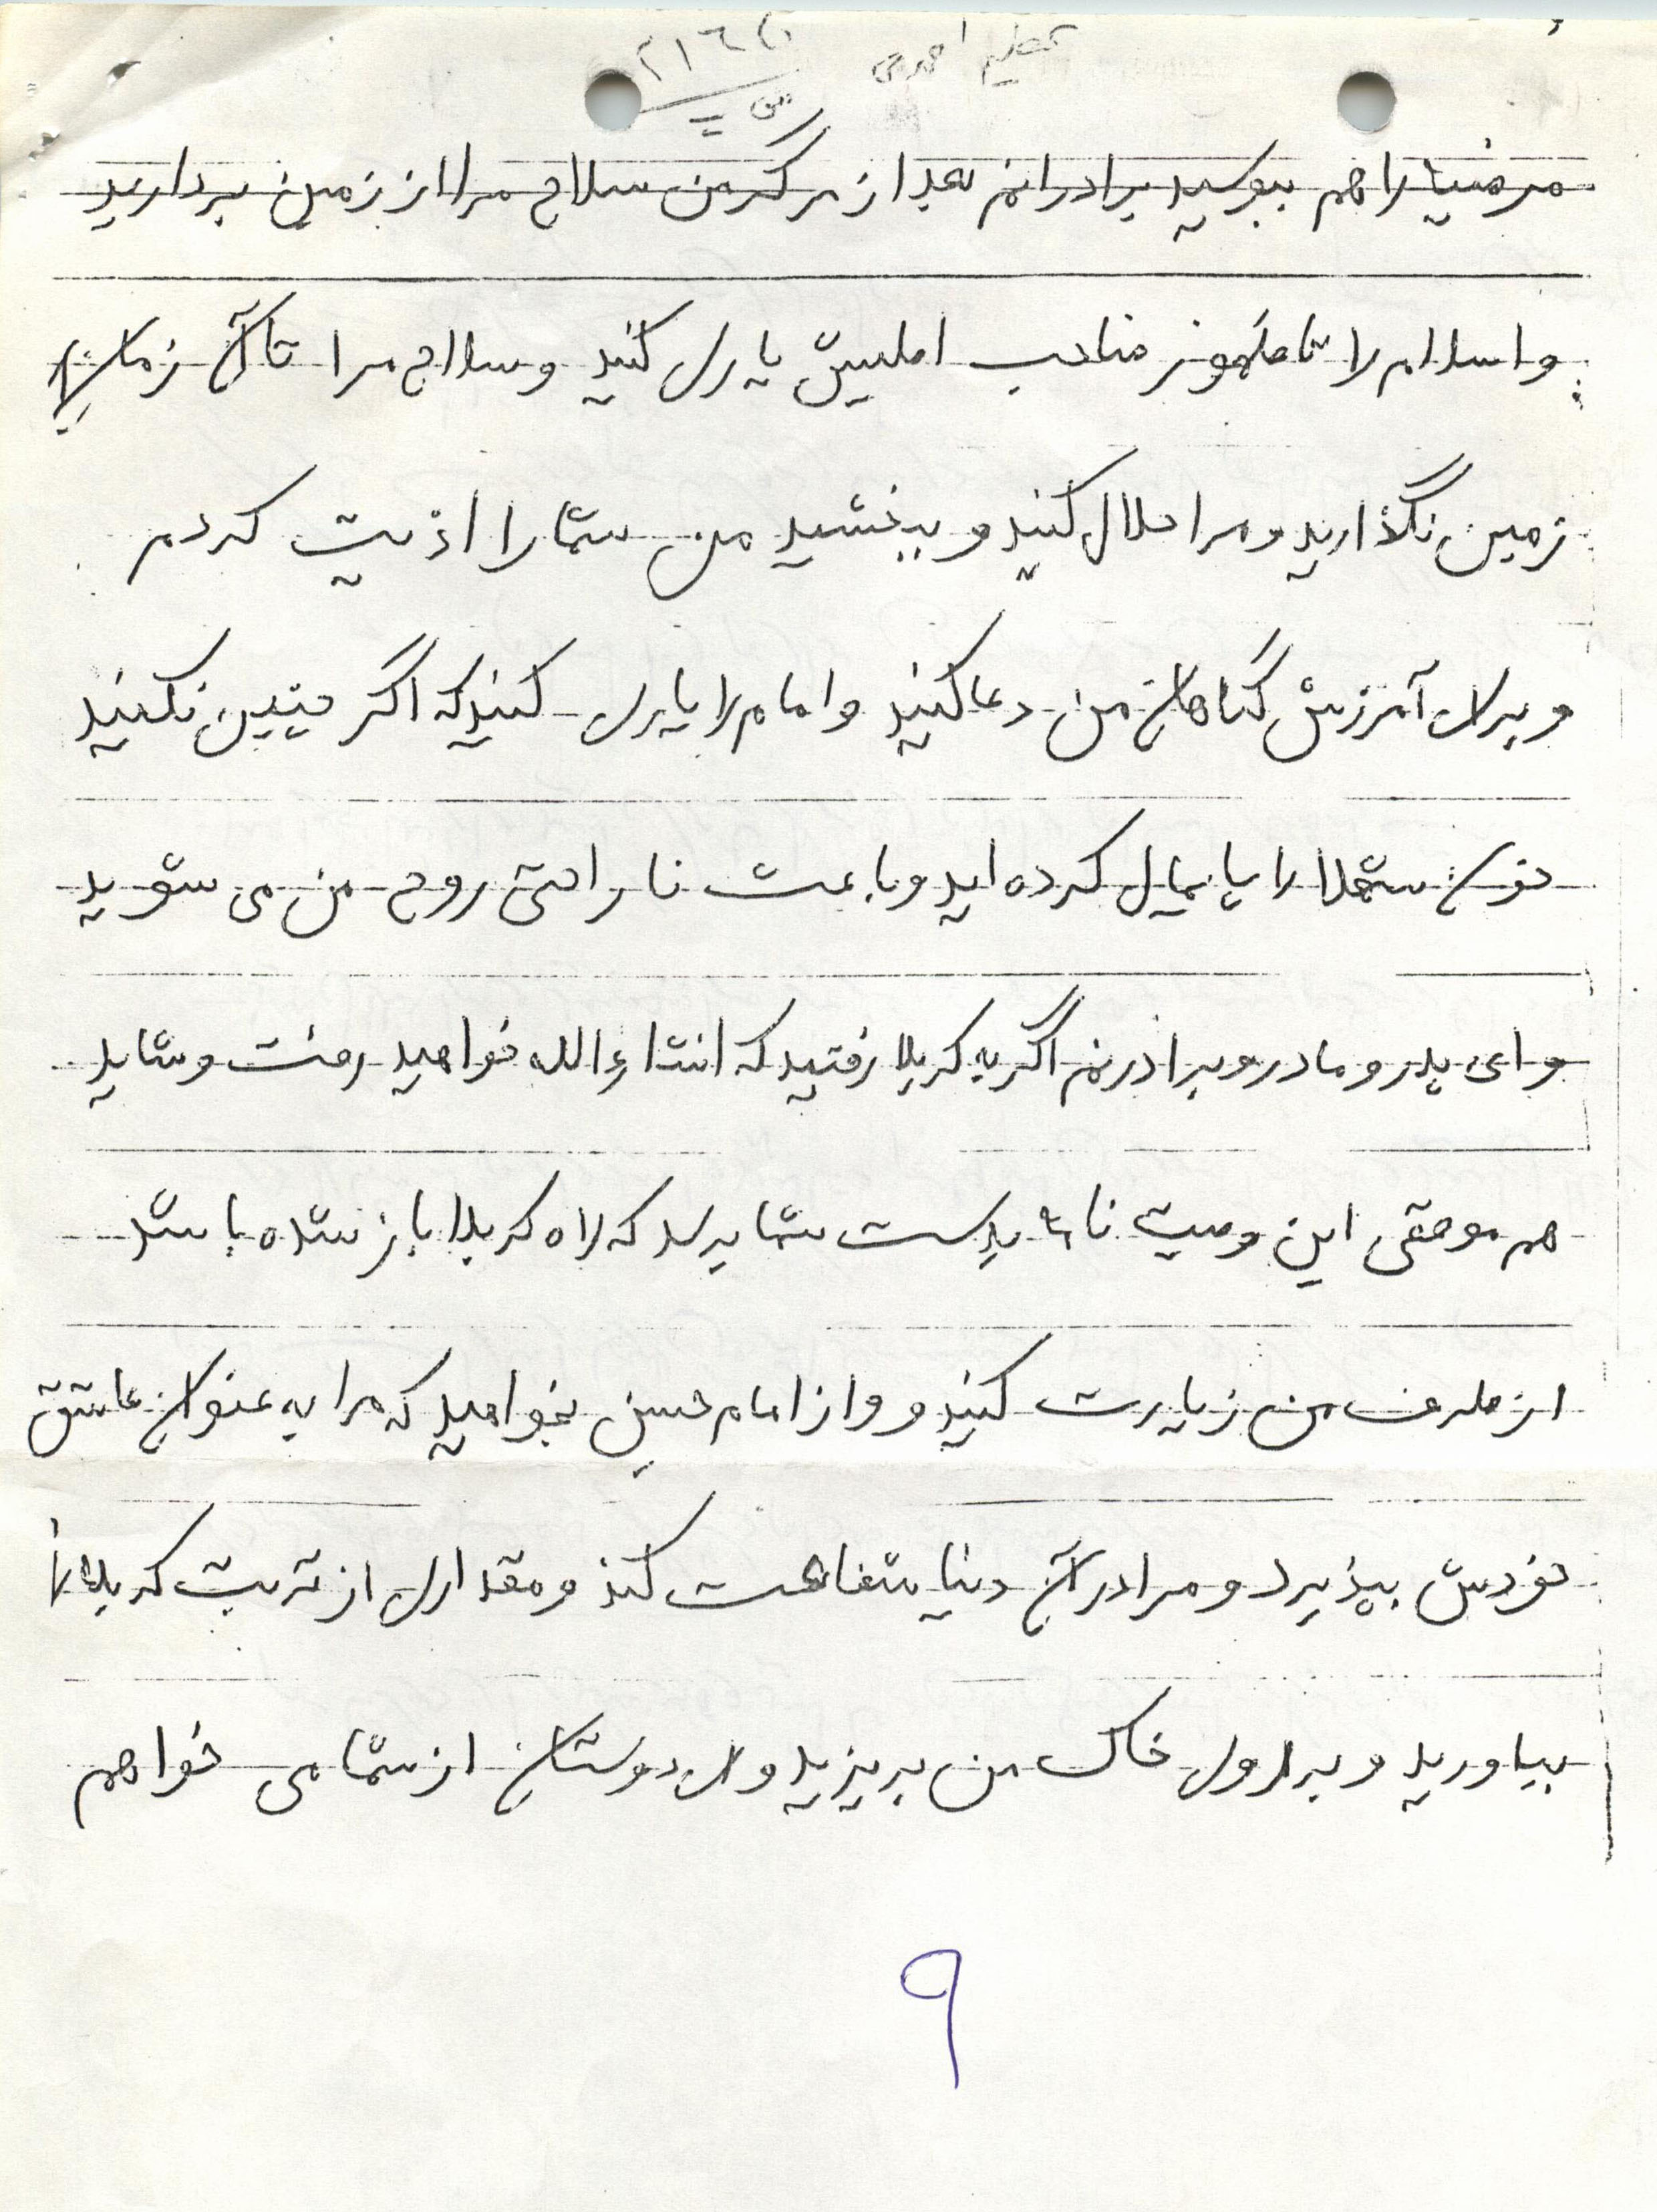 عظیم احمدی
مرضیه را هم ببوسید برادرانم بعد از مرگ من سلاح مرا از زمین بردارید
و اسلام را تا ظهور صاحب اصلیش یاری کنید و سلاح مرا تا آن زمان
زمین نگذارید و مرا حلال کنید و ببخشید من شما را اذیت کردم
و برای آمرزش گناهان من دعا کنید و امام را یاری کنید که اگر چنین نکنید
خون شهدا را پایمال کرده اید و باعث ناراحتی روح من می شوید
و ای پدر و مادر و برادرنم اگر به کربلا رفتید که انشاءالله خواهید رفت و شاید
هم موقعی این وصیت نامه بدست شما برسد که راه کربلا باز شده باشد
از طرف من زیارت کنید و و از امام حسین بخواهید که مرا به عنوان عاشق
خودش بپذیرد و مرا در آن دنیا شفاعت کند و مقداری از تربت کربلا
بیاورید و بر روی خاک من بریزید و ای دوستان از شما می خواهم
۹